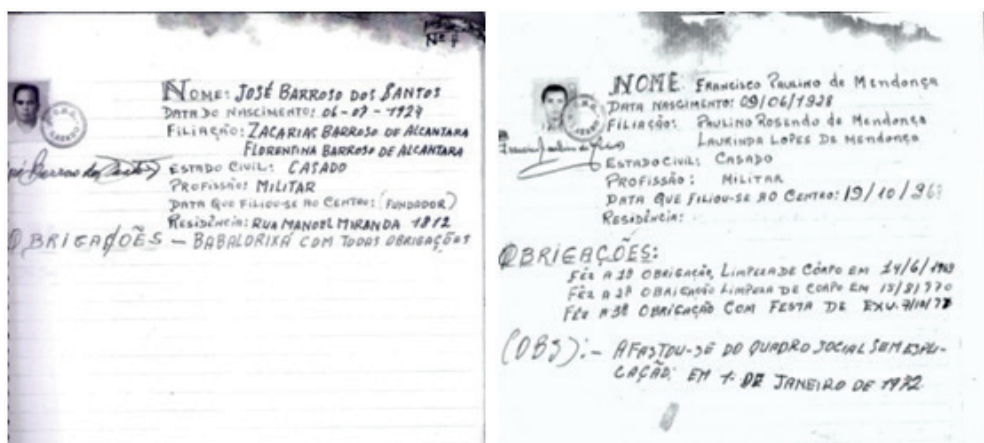 Nº
NOME: JOSÉ BARROSO DOS SANTOS
DATA DO NASCIMENTO: 06-07-1927
FILIAÇÃO: ZACARIAS BARROSO DE ALCANTARA
FLORENTINA BARROSO DE ALCANTARA
ESTADO CIVIL: CASADO
PROFISSÃO: MILITAR
DATA QUE FILIOU-SE AO CENTRO: (FUNDADOR)
RESIDÊNCIA: RUA MANOEL MIRANDA 1812
OBRIGAÇÕES - BABALORIXÁ COM TODAS OBRIGAÇÕES
NOME: FRANCISCO PAULINO DE MENDONÇA
DATA NASCIMENTO: 09/06/1928
FILIAÇÃO: PAULINO ROSENDO DE MENDONÇA
LAURINDA LOPES DE MENDONÇA
ESTADO CIVIL: CASADO
PROFISSÃO: MILITAR
DATA QUE FILIOU-SE AO CENTRO: 19/10/
RESIDÊNCIA:
OBRIGAÇÕES:
FÊZ A 1ª OBRIGAÇÃO, LIMPEZA DE CÔRPO EM
FÊZ A 2ª OBRIGAÇÃO LIMPEZA DE CORPO EM
FÊZ A 3ª OBRIGAÇÃO COM FESTA DE EXU.
(OBS):- AFASTOU-SE DO QUADRO SOCIAL SEM ESPLI-
CAÇÃO: EM 1. DE JANEIRO DE 1972